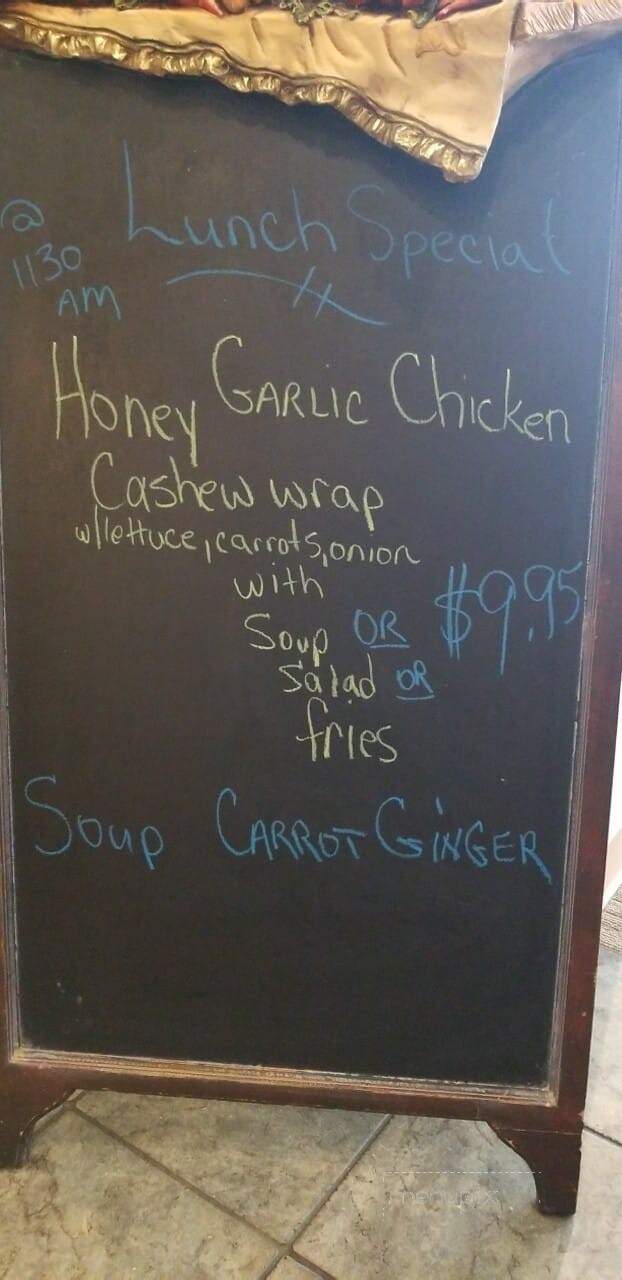 @ Lunch Special
1130
AM
Honey GARLIC Chicken
Cashew wrap
w/lettuce, carrots, onion
with
Soup OR $9.95
Salad OR
fries
Soup CARROT GINGER
menupix